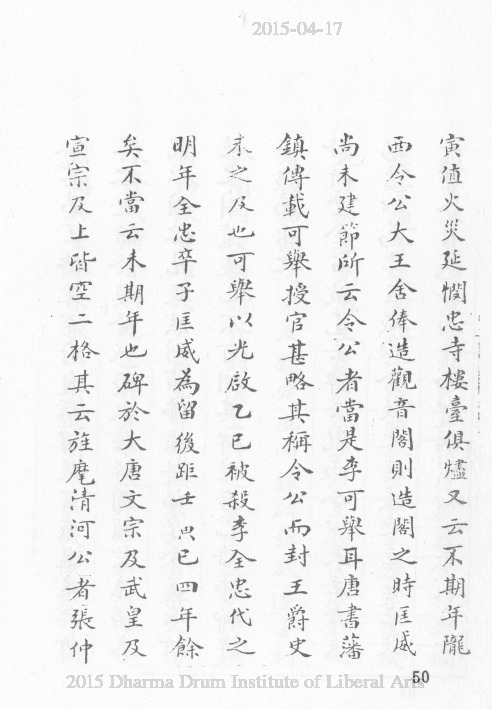 2015-04-17
寅值火災延憫忠寺樓臺俱燼又云不期年隴
西令公大王舍俸造觀音閣則造閣之時匡威
尚未建節所云令公者當是李可舉耳唐書藩
鎮傳載可舉授官甚略其稱令公而封王爵史
未之及也可舉以光啟乙巳被殺李全忠代之
明年全忠卒子匡威為留後距壬寅已四年餘
矣不當云未期年也碑於大唐文宗及武皇及
宣宗及上皆空二格其云旌麾清河公者張仲
50
2015 Dharma Drum Institute of Liberal Arts